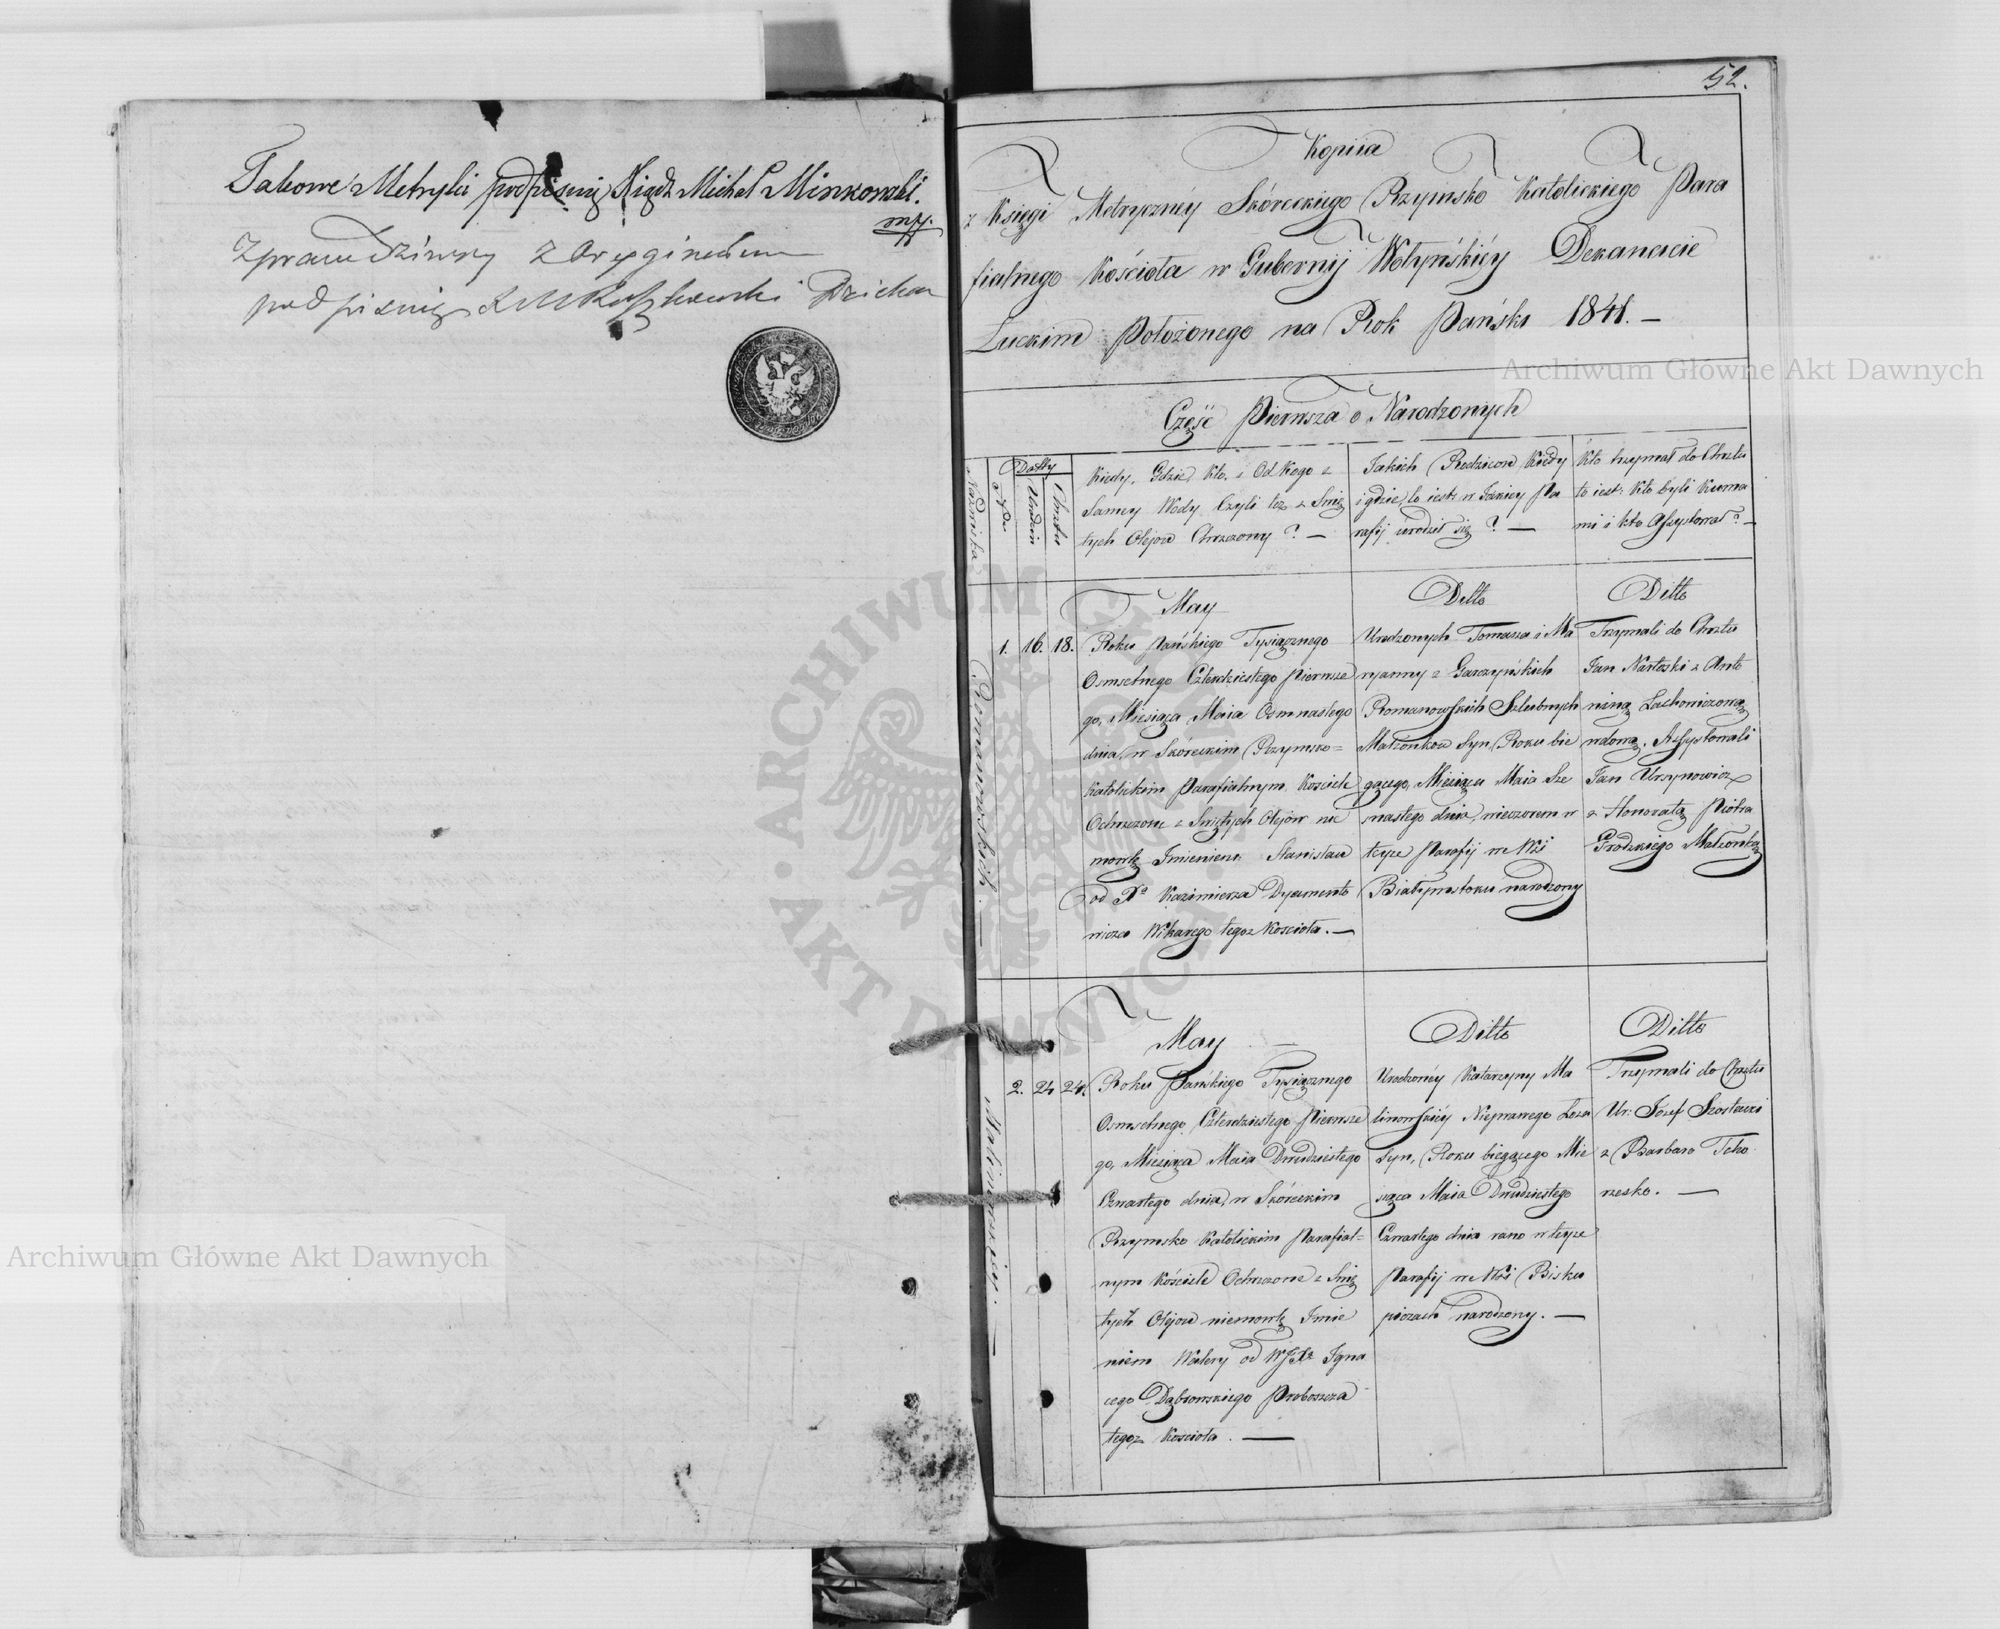 Takowe Metryki podpisuię Xiądz Michał Minkowski.
mp.
Zprawdziwszy z Oryginałem
podpisuię Dziekan
52.
Kopiia
z Księgi Metrycznéy Skóreckiego Rzymsko Katolickiego Para
fialnego Kościoła w Gubernij Wołyńskiéy Dekanacie
Łuckim Położonego na Rok Pański 1841. —
Archiwum Główne Akt Dawnych
Część Pierwsza o Narodzonych
Nazwiska
Datty
Urodzin
Chrztu
Kiedy, Gdzie, Kto, i Od Kogo z
Samey Wody Czyli też z Świę
tych Olejow Chrzczony? —
Jakich Rodzicow Kiedy
i gdzie, to iest: w Jakiey Pa
rafij urodził się? —
Kto trzymał do Chrztu
to iest: Kto byli Kuma
mi i kto Assystował? —
May
Ditto
Ditto
Romanowskich. —
1. 16. 18.
Roku Pańskiego Tysiącznego
Osmsetnego Czterdziestego Pierwsze
go, Miesiąca Maia Osmnastego
dnia, w Skóreckim Rzymsko=
Katolickim Parafialnym Kosciele
Ochrzczone z Świętych Olejów nie
mowlę Imieniem Stanisław
od Xa Kazimierza Dyamento
wicza Wikarego tegoz Kosciola. —
Urodzonych Tomasza i Ma
ryanny z Garczyńskich
Romanowskich Szlubnych
Małżonkow Syn, Roku bie
gącego, Miesiąca Maia Sze
snastego dnia, wieczorem w
teyze Parafij we Wsi
Białymstoku narodzony
Trzymali do Chrztu
Jan Nartoski z Anto
niną Lachowiczową
wdową. Assystowali
Jan Ursynowicz
z Honoratą Piotra
Grodzkiego Małzonką
May —
Ditto
Ditto
Malinowskiey. —
2. 24 24.
Roku Pańskiego Tysiącznego
Osmsetnego Czterdziestego Pierwsze
go, Miesiąca Maia Dwudziestego
Czwartego dnia, w Skóreckim
Rzymsko Katolickim Parafial=
nym Kościele Ochrzczone z Świę
tych Olejow niemowlę Imie
niem Walery od WJXa Igna
cego Dąbrowskiego Proboszcza
tegoz Kosciola. —
Urodzonéy Katarzyny Ma
linowskiéy Nieprawego Łoza
Syn, Roku biegącego Mie
siąca Maia Dwudziestego
Czwartego dnia rano w teyze
Parafij we Wsi Bisku
piczach narodzony. —
Trzymali do Chrztu
Ur: Józef Szostacki
z Barbaro Tcho
rzesko. —
Archiwum Główne Akt Dawnych
ARCHIWUM GŁÓWNE AKT DAWNYCH